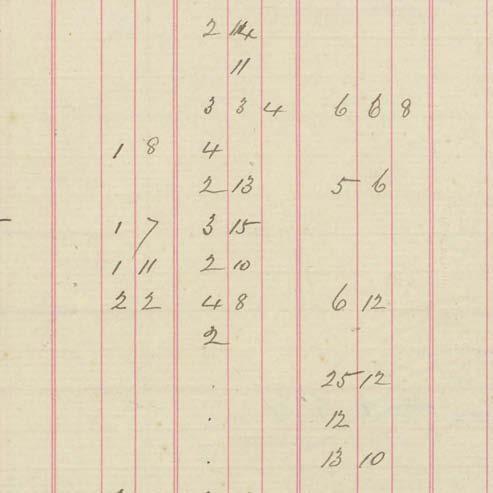 2 14
11
3 3 4 6 6 8
1 8 4
2 13 5 6
1 7 3 15
1 11 2 10
2 2 4 8 6 12
2
. 25 12
. 12
. 13 10